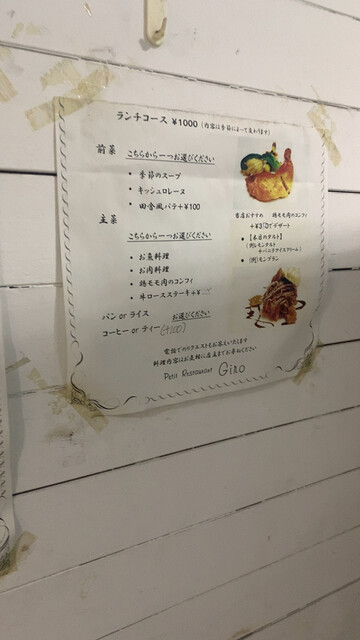 ランチコース ¥1000 (内容は季節によって変わります)
前菜 こちらから一つお選びください
• 季節のスープ
• キッシュロレーヌ
• 田舎風パテ+¥100
主菜 こちらから一つお選びください
• お魚料理
• お肉料理
• 鶏モモ肉のコンフィ
• 牛ロースステーキ+¥
パン or ライス お選びください
コーヒー or ティー(+100)
電話でのリクエストもお答えいたします
料理内容はお気軽に店主までお尋ねください
Petit Restaurant GIRO
当店おすすめ 鶏モモ肉のコンフィ
+¥310でデザート
• 【本日のタルト】
(例)レモンタルト
+バニラアイスクリーム)
• (例)モンブラン